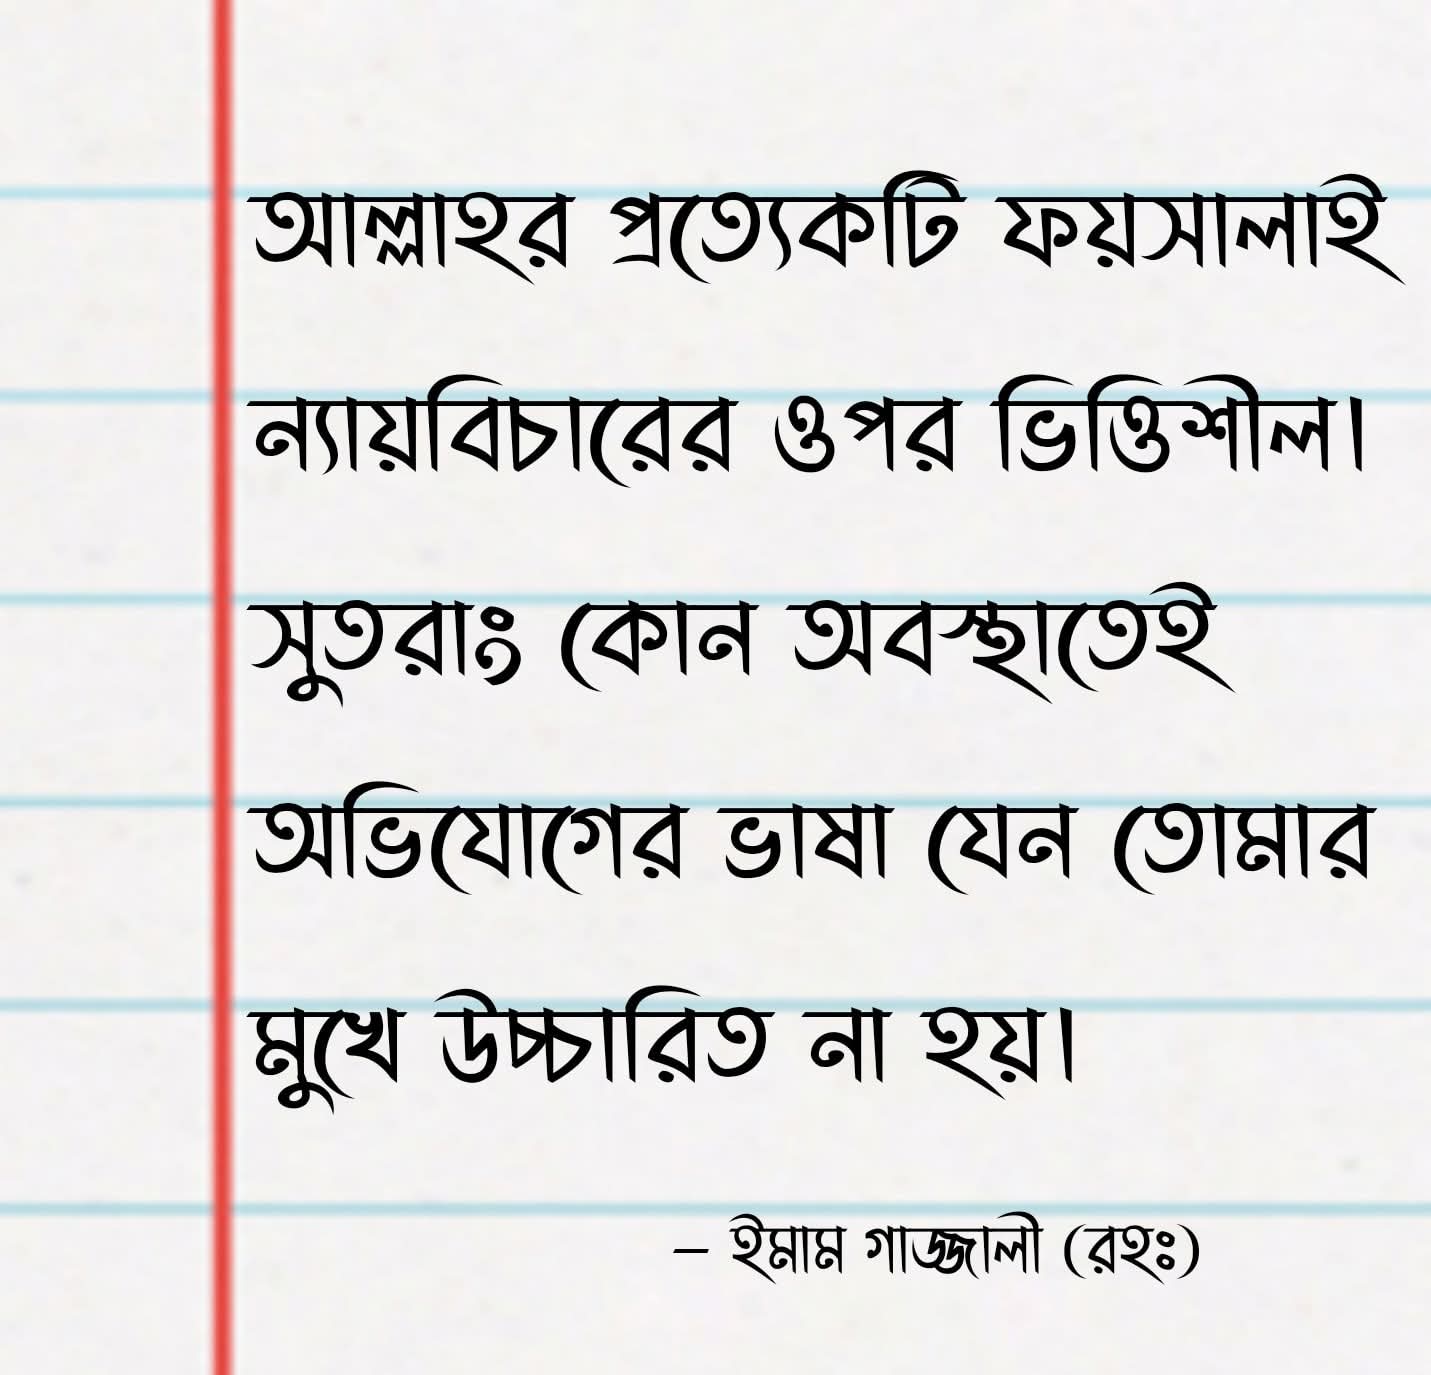 আল্লাহর প্রত্যেকটি ফয়সালাই
ন্যায়বিচারের ওপর ভিত্তিশীল।
সুতরাং কোন অবস্থাতেই
অভিযোগের ভাষা যেন তোমার
মুখে উচ্চারিত না হয়।
– ইমাম গাজ্জালী (রহঃ)